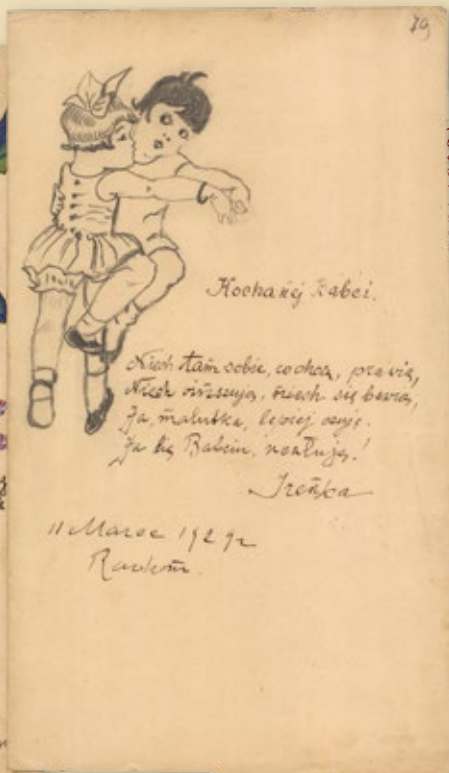 79
Kochanej Babci.
Niech tam sobie, co chcą, prawią,
Niech winszują, niech się bawią,
Ja, malutka, lepiej czuję.
Ja Cię Babciu, ucałuję!
Irenka
11 Marec 1929r